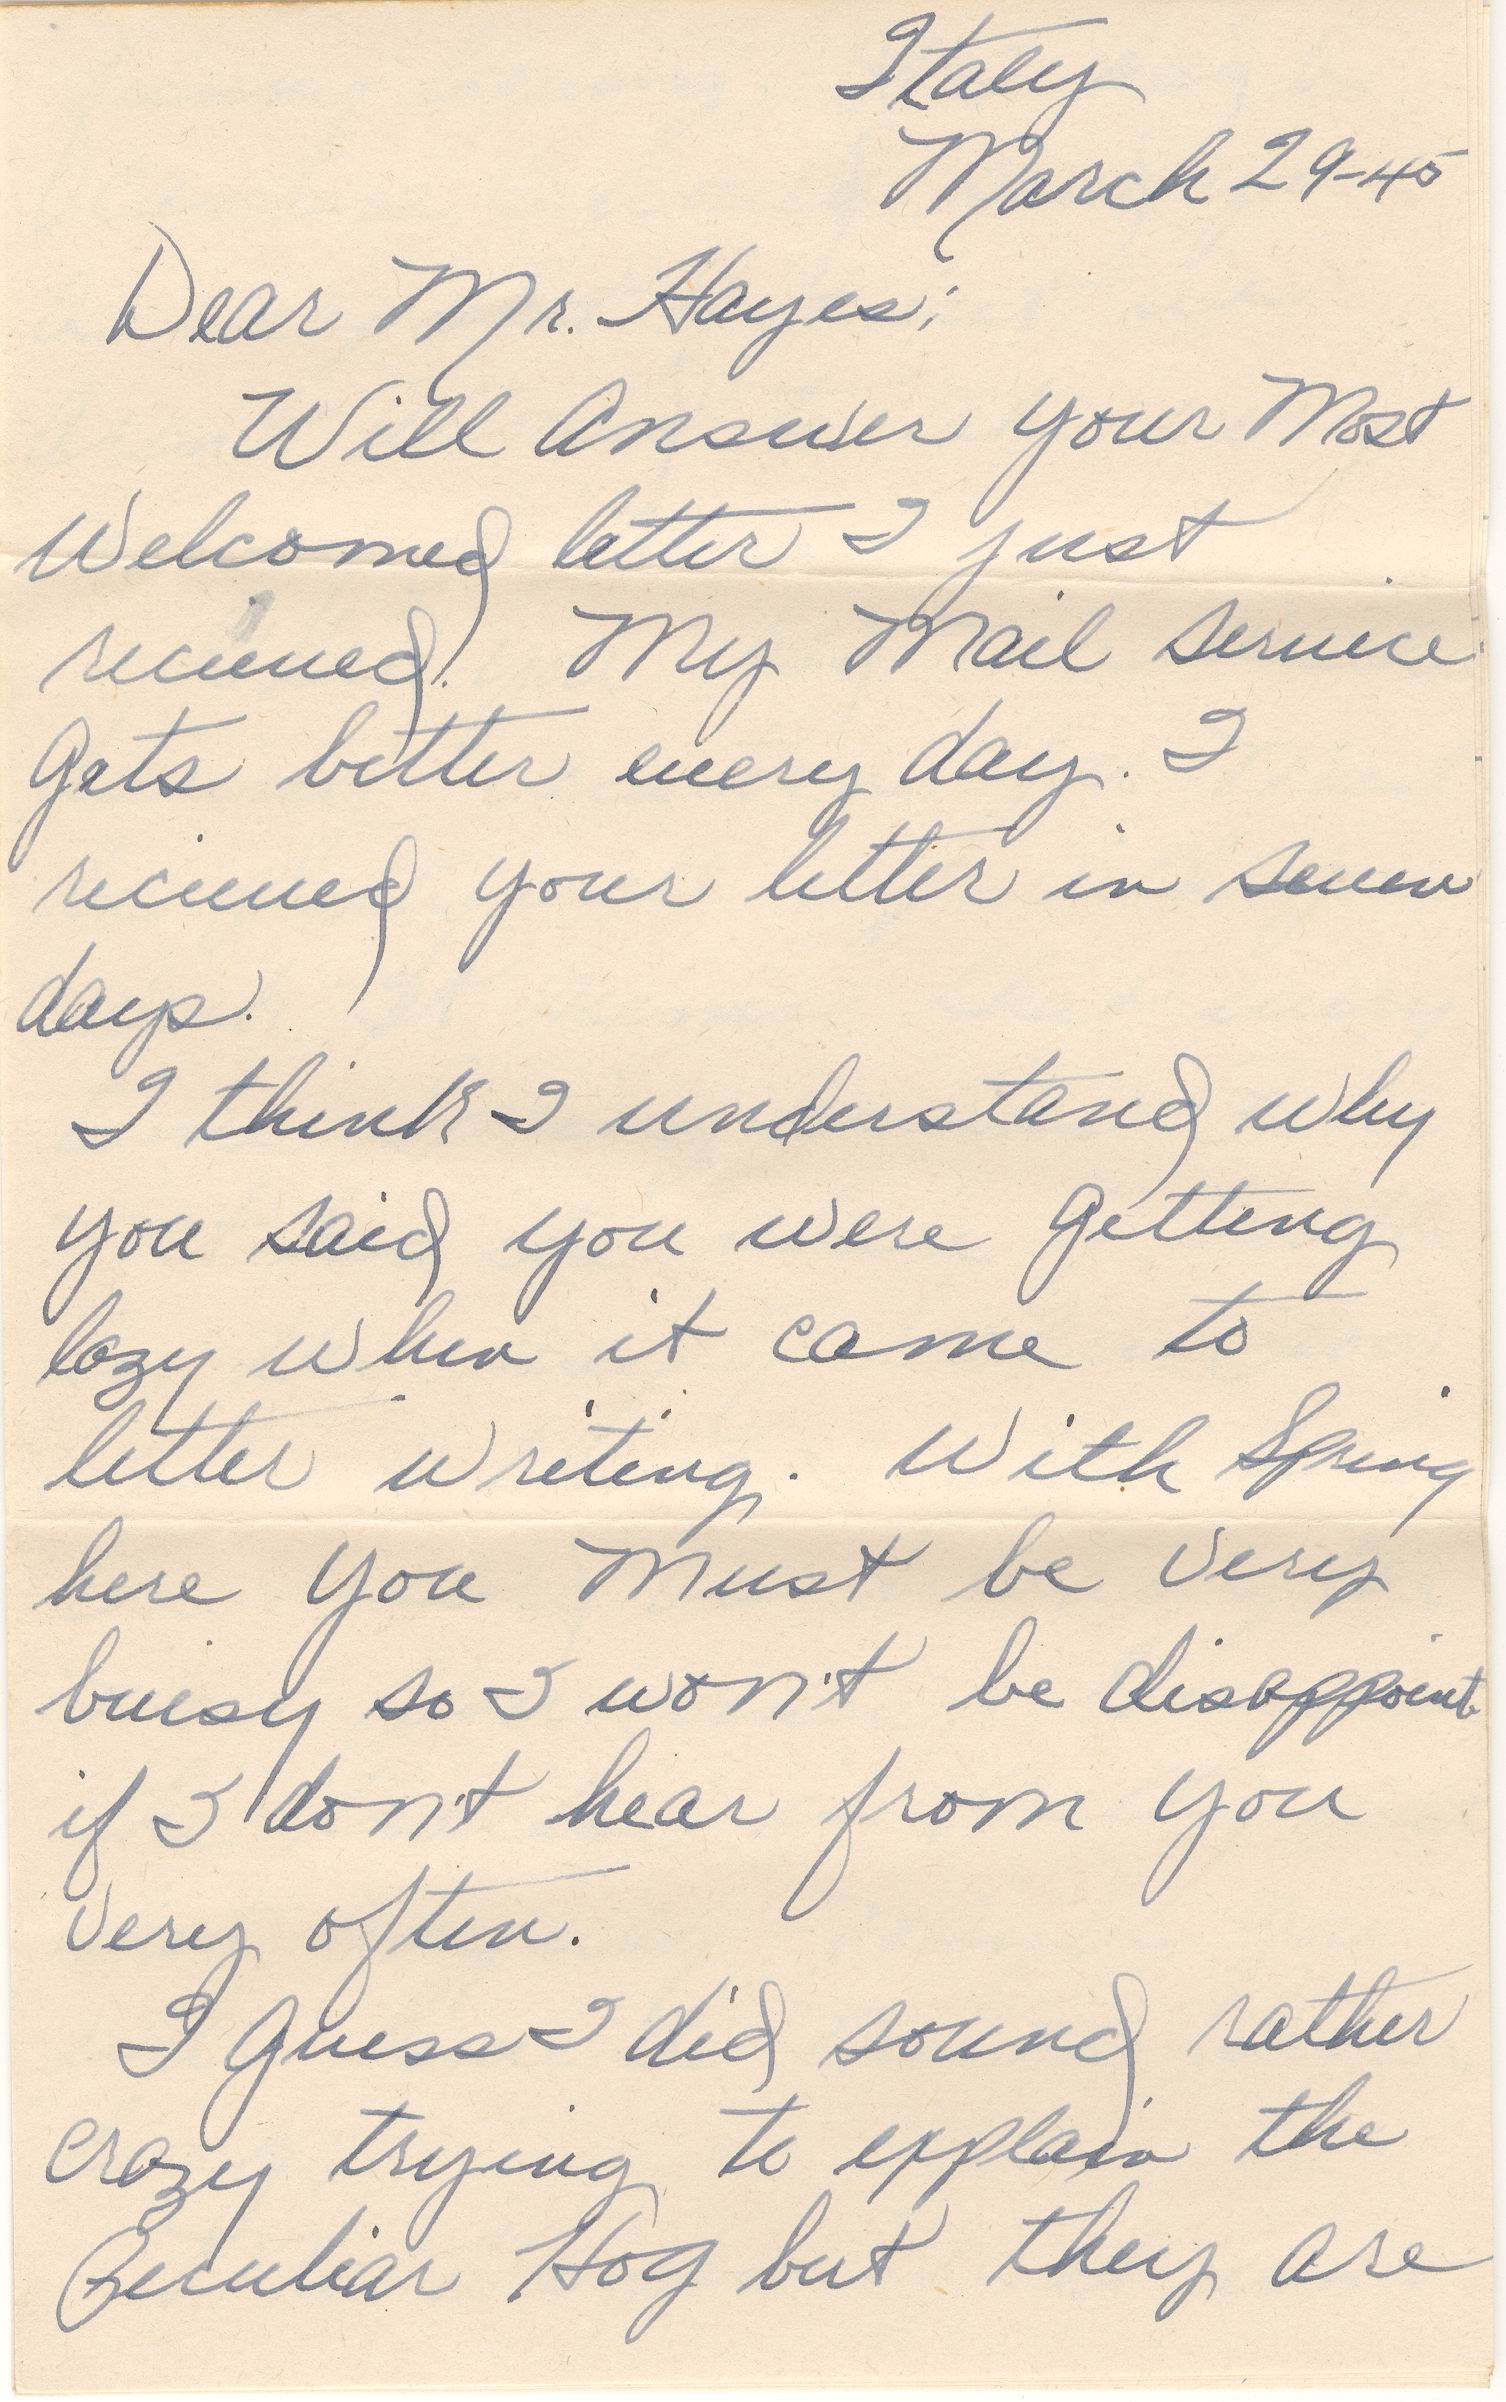 Italy
March 29-45
Dear Mr. Hayes;
Will Answer your Most
Welcomed letter I just
recieved. My Mail service
gets better every day. I
recieved your letter in seven
days.
I think I understand why
you said you were getting
lazy when it came to
letter writing. With Spring
here you Must be very
buisy so I won't be disappoint
if I don't hear from you
very often.
I guess I did sound rather
crazy trying to explain the
Peculiar Hog but they are